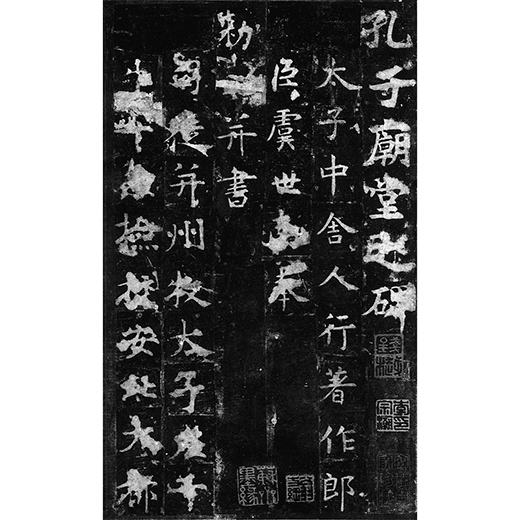 孔子廟堂之碑
太子中舍人行著作郎
臣虞世南奉
勑撰并書
司徒并州牧太子左千
牛率兼撿校安北大都